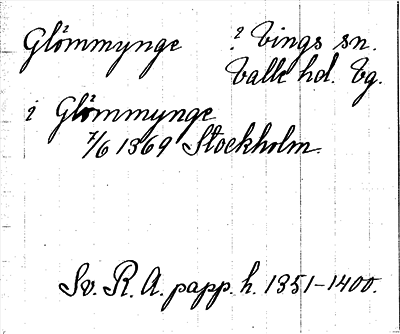 Glömmynge ? Vings sn.
Valle hd. Vg.
i Glömmynge
7/6 1369 Stockholm.
Sv. R. A. papp. h. 1351-1400.